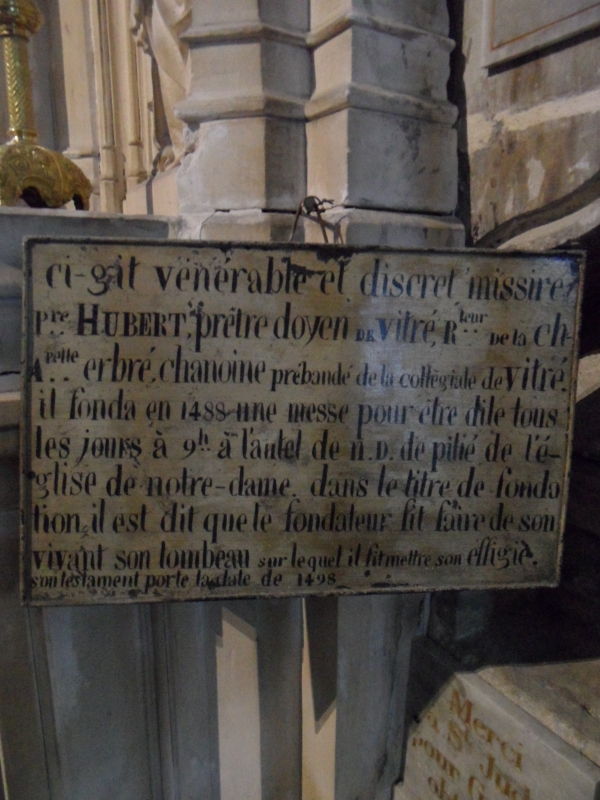 ci-gît vénérable et discret missire
pre. HUBERT, prêtre doyen DE vitré, Rteur.. De la ch-
Apelle.. erbré, chanoine prébandé de la collégiale de vitré.
il fonda en 1488 une messe pour être dite tous
les jours à 9h. à l'autel de n.D. de pitié de l'é-
glise de notre-dame. dans le titre de fonda
tion, il est dit que le fondateur fit faire de son
vivant son tombeau sur lequel il fit mettre son effigie.
son testament porte la date de 1498
Merci
à St Jud
pour G